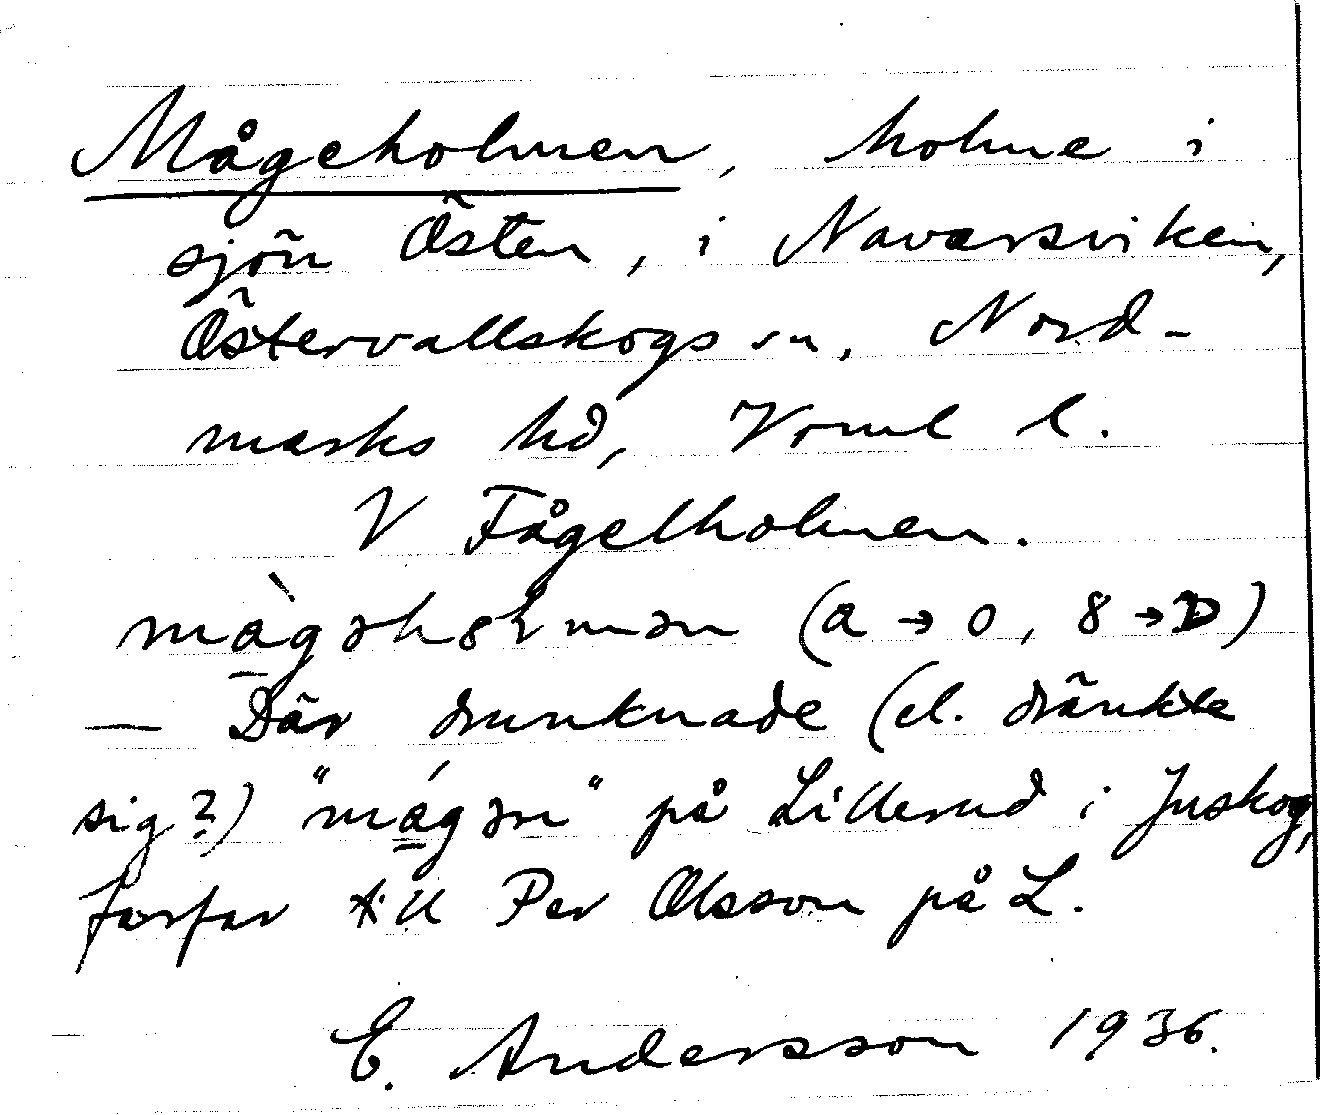 Mågeholmen, holme i
sjön Östen, i Navarsviken,
Östervallskogs sn, Nord-
marks hd, Vrml l.
V Fågelholmen.
(a → o, 8 → D)
— Där drunknade (el. dränkte
sig?) "mágən" på Lillerud i Juskog,
farfar till Per Olsson på L.
E. Andersson 1936.